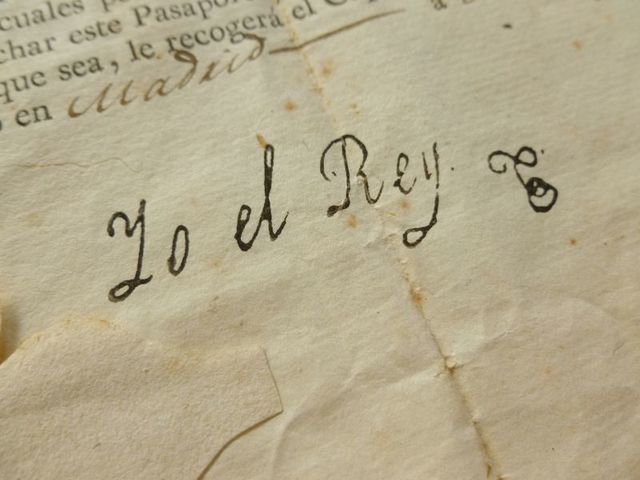 cuales
char este Pasapor
que sea, le recogerá el
en Madrid
Yo el Rey